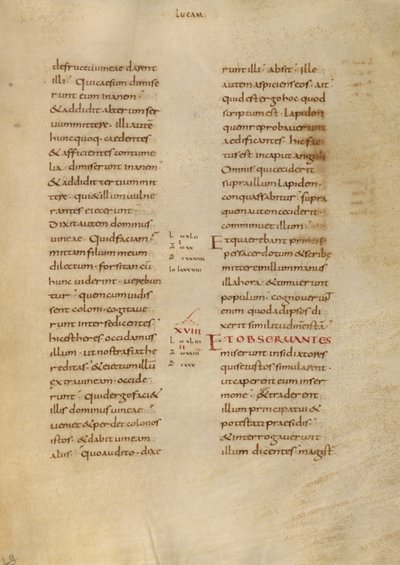 LUCAM
defructuuineae darent
illi · Qui caesum dimise
runt eum inanem ·
& addidit alterum ser
uum mittere · illi aute
hunc quoq; caedentes
& afficientes contume
lia · dimiserunt inanem ·
& addidit tertium mit
tere · qui & illum uulne
rantes eiecerunt ·
Dixit autem dominus
uineae · Quid faciam ·
mittam filium meum
dilectum · forsitan cū
hunc uiderint · uerebun
tur · quem cum uidis
sent coloni · cogitaue
runt inter se dicentes
hic est heres occidamus
illum · ut nostra fiat he
reditas · & eiectum illum
extra uineam · occide
runt · quid ergo faci&
illis dominus uineae ·
ueni& & perd& colonos
istos · & dabit uineam
aliis · Quo audito · dixe
XVIII
runt illi · absit · ille
autem aspiciens eos · ait
quid est ergo hoc quod
scriptum est · Lapidem
quem reprobauerunt
aedificantes · hic fac
tus est in caput anguli
Omnis qui ceciderit
supra illum lapidem ·
conquassabitur · supra
quem autem ceciderit ·
comminuet illum ·
Et quaerebant princip
pes sacerdotum & scribe
mittere in illum manus
illa hora · & timuerunt
populum · cognouerunt
enim quod ad ipsos di
xerit similitudinē istā ·
ET OBSERVANTES
miserunt insidiatores
qui se iustos simularent ·
ut caperent eum in ser
mone · & traderent
illum principatui &
potestati praesidis ·
& interrogauerunt
illum dicentes · magist